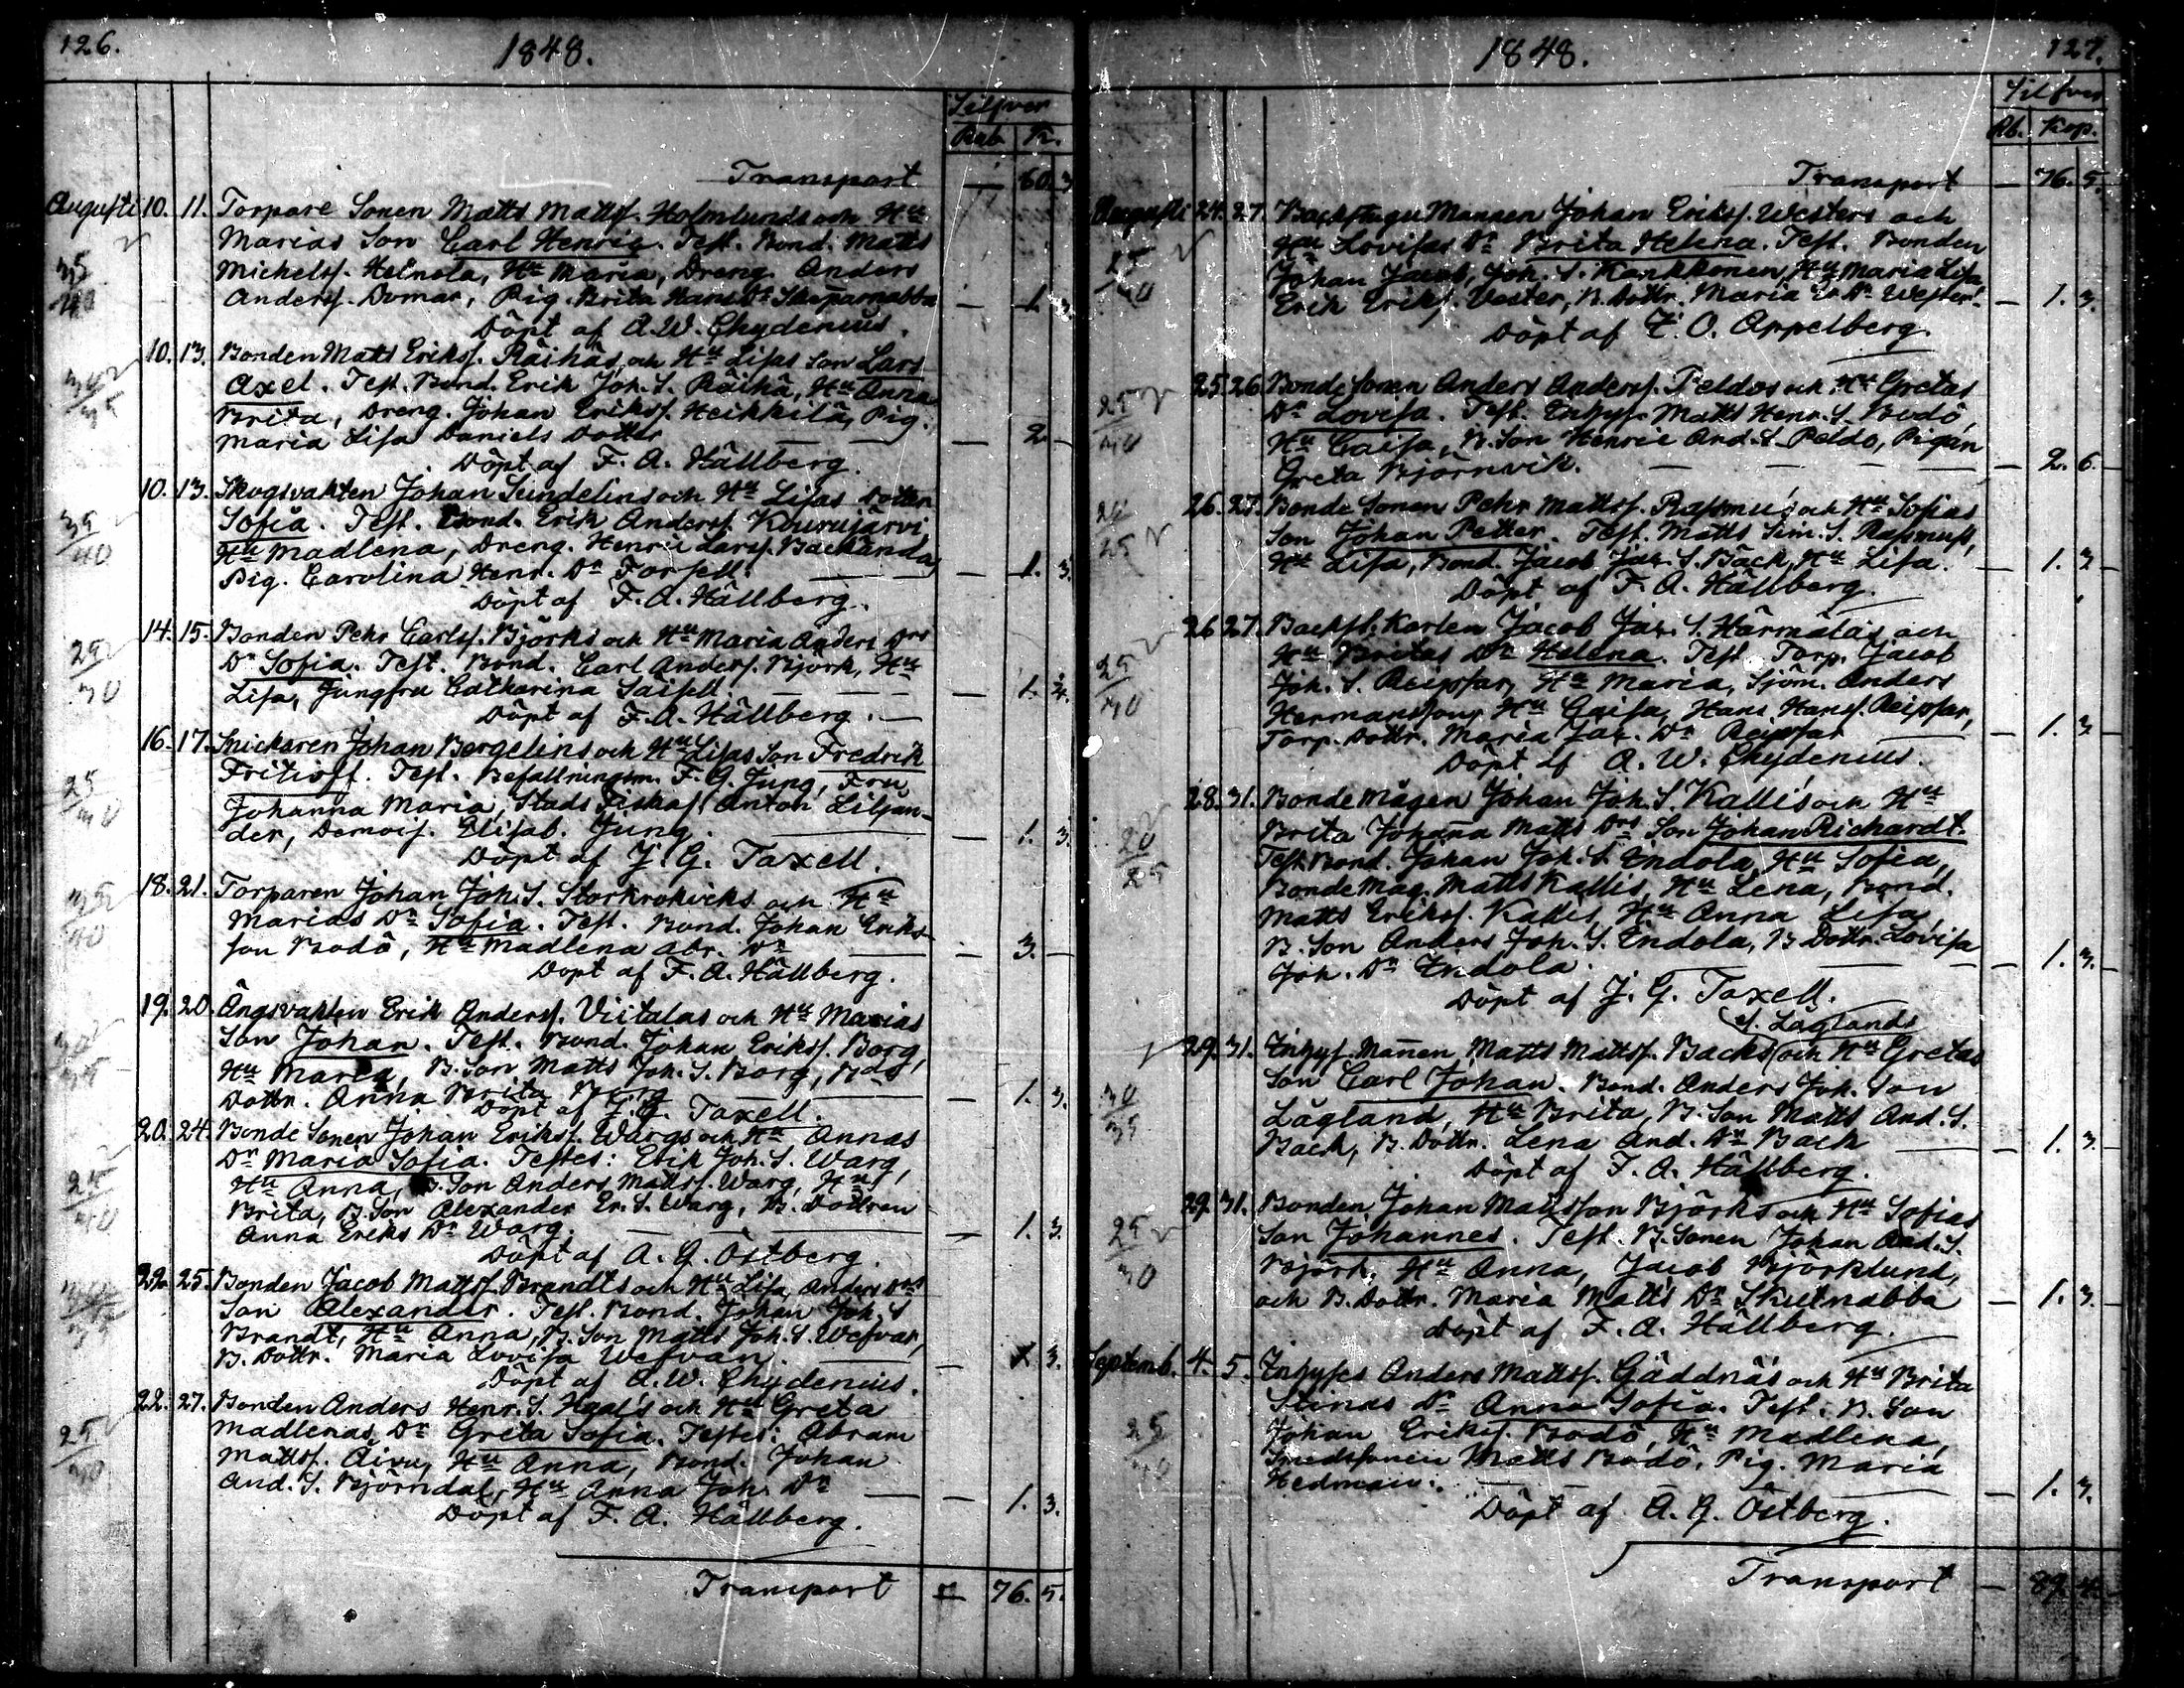 126.
1848.
Silfver
Rub K.
Transport — 60. 3
Augusti 10. 11. Torpare Sonen Matts Mattss. Holmlunds och Hu
Marias Son Carl Henric. Test. Bond. Matts
35 Michelss. Heinola, Hu Maria, Dreng. Anders
40 Anderss. Domar, Pig. Brita Hans Dr Skoparnabba — 1. 3
Döpt af A. W. Chydenius.
10. 13. Bonden Matts Erikss. Räihäs och Hu Lisas Son Lars
Axel. Test. Bond. Erik Joh. S. Räihä, Hu Anna
35 Brita, Dreng. Johan Erikss. Heikkilä, Pig.
Maria Lisa Daniels Dotter — 2. —
Döpt af F. A. Hällberg.
10. 13. Skogsvakten Johan Sundelins och Hu Lisas Dotter
35 Sofia. Test. Bond. Erik Anderss. Kourujärvi
40 Hu Madlena, Dreng. Henric Larss. Backända,
Pig. Carolina Henr. Dr Forsell. — 1. 3.
Döpt af F. A. Hällberg.
14. 15. Bonden Pehr Carlss. Björks och Hu Maria Anders Drs
25 Dr Sofia. Test. Bond. Carl Anderss. Björk, Hu
30 Lisa, Jungfru Catharina Saisell. — 1.
Döpt af F. A. Hällberg. —
16. 17. Snickaren Johan Bergelins och Hu Lisas Son Fredrik
25 Fritioff. Test. Befallningsm. F. G. Jung, Fru
30 Johanna Maria, Stads Fiskal Anton Liljan-
der, Demois. Elisab. Jung. — 1. 3.
Döpt af J. G. Taxell.
18. 21. Torparen Johan Joh. S. Storkrokvicks och Hu
35 Marias Dr Sofia. Test. Bond. Johan Eriks-
40 son Bodö, Hu Madlena Abr. Dr — 3. —
Döpt af F. A. Hällberg.
19. 20. Ängsvakten Erik Anderss. Viitalas och Hu Marias
Son Johan. Test. Bond. Johan Erikss. Borg,
Hu Maria, B. Son Matts Joh. S. Borg, Bds
Dottr. Anna Brita Borg — 1. 3.
Döpt af J. G. Taxell.
20. 24. Bonde Sonen Johan Erikss. Wargs och Hu Annas
25 Dr Maria Sofia. Testes: Erik Joh. S. Warg,
30 Hu Anna, B. Son Anders Mattss. Warg, Hu
Brita, B. Son Alexander Er. S. Warg, B. Dottren
Anna Eriks Dr Warg. — 1. 3.
Döpt af A. G. Östberg.
22. 25. Bonden Jacob Mattss. Brandts och Hu Lisa Anders Drs
Son Alexander. Test. Bond. Johan Joh. S
Brandt, Hu Anna, B. Son Matts Joh. S. Wefvar,
B. Dottr. Maria Lovisa Wefvar. — 1. 3.
Döpt af A. W. Chydenius.
22. 27. Bonden Anders Henr. S. Haals och Hu Greta
25 Madlenas Dr Greta Sofia. Testes: Abram
30 Mattss. Aivu, Hu Anna, Bond. Johan
And. S. Björndal, Hu Anna Joh. Dr — 1. 3.
Döpt af F. A. Hällberg.
Transport — 76. 5.
1848.
127.
Silfver
Rb. Kop.
Transport — 76. 5.
Augusti 24. 27. Backstugu Mannen Johan Erikss. Westers och
25 Hu Lovisas Dr Brita Helena. Test. Bonden
30 Johan Jacob, Joh. S. Karkkonen, Hu Maria Lisa,
Erik Erikss. Vester, B. Dottr. Maria Er. Dr Wester. — 1. 3.
Döpt af E. O. Appelberg.
25. 26. Bonde Sonen Anders Anderss. Peldos och Hu Gretas
25 Dr Lovisa. Test. Inhys. Matts Henr. S. Bodö,
30 Hu Caisa, B. Son Henric And. S. Peldo, Pigan
Greta Björnvik. — 2. 6.
26. 27. Bonde Sonen Pehr Mattss. Rasmus och Hu Sofias
25 Son Johan Petter. Test. Matts Sim. S. Rasmuss,
Hu Lisa, Bond. Jacob Jac. S. Bäck, Hu Lisa. — 1. 3
Döpt af F. A. Hällberg.
26. 27. Backst. Karlen Jacob Jac. S. Härmäläs och
25 Hu Britas Dr Helena. Test. Torp. Jacob
30 Joh. S. Reipsar, Hu Maria, Sjöm. Anders
Hermansson, Hu Caisa, Hans Hanss. Reipsar,
Torp. Dottr. Maria Jac. Dr Reipsar — 1. 3
Döpt af A. W. Chydenius.
28. 31. Bonde Mågen Johan Joh. S. Kallis och Hu
20 Brita Johanna Matts Drs Son Johan Richardt.
25 Test. Bond. Johan Joh. S. Indola, Hu Sofia,
Bonde Mag. Matts Kallis, Hu Lena, Bond.
Matts Erikss. Kallis, Hu Anna Lisa,
B. Son Anders Joh. S. Indola, B. Dottr. Lovisa
Joh. Dr Indola. — 1. 3.
Döpt af J. G. Taxell.
Låglands
29. 31. Inhys. Mannen Matts Mattss. Backs och Hu Gretas
30 Son Carl Johan. Bond. Anders Joh. Son
35 Lågland, Hu Brita, B. Son Matts And. S.
Back, B. Dottr. Lena And. Dr Back — 1. 3.
Döpt af F. A. Hällberg.
29. 31. Bonden Johan Mattsson Björks och Hu Sofias
25 Son Johannes. Test. B. Sonen Johan And. S.
30 Björk, Hu Anna, Jacob Björklund,
och B. Dottr. Maria Matts Dr Skutnabba — 1. 3.
Döpt af F. A. Hällberg.
Septemb. 4. 5. Inhyses Anders Mattss. Gäddnäs och Hu Brita
Stinas Dr Anna Sofia. Test: B. Son
25 Johan Erikss. Bodö, Hu Madlena,
30 Smedsonen Matts Bodö, Pig. Maria
Hedman. — 1. 3.
Döpt af A. G. Östberg.
Transport — 89. 4.